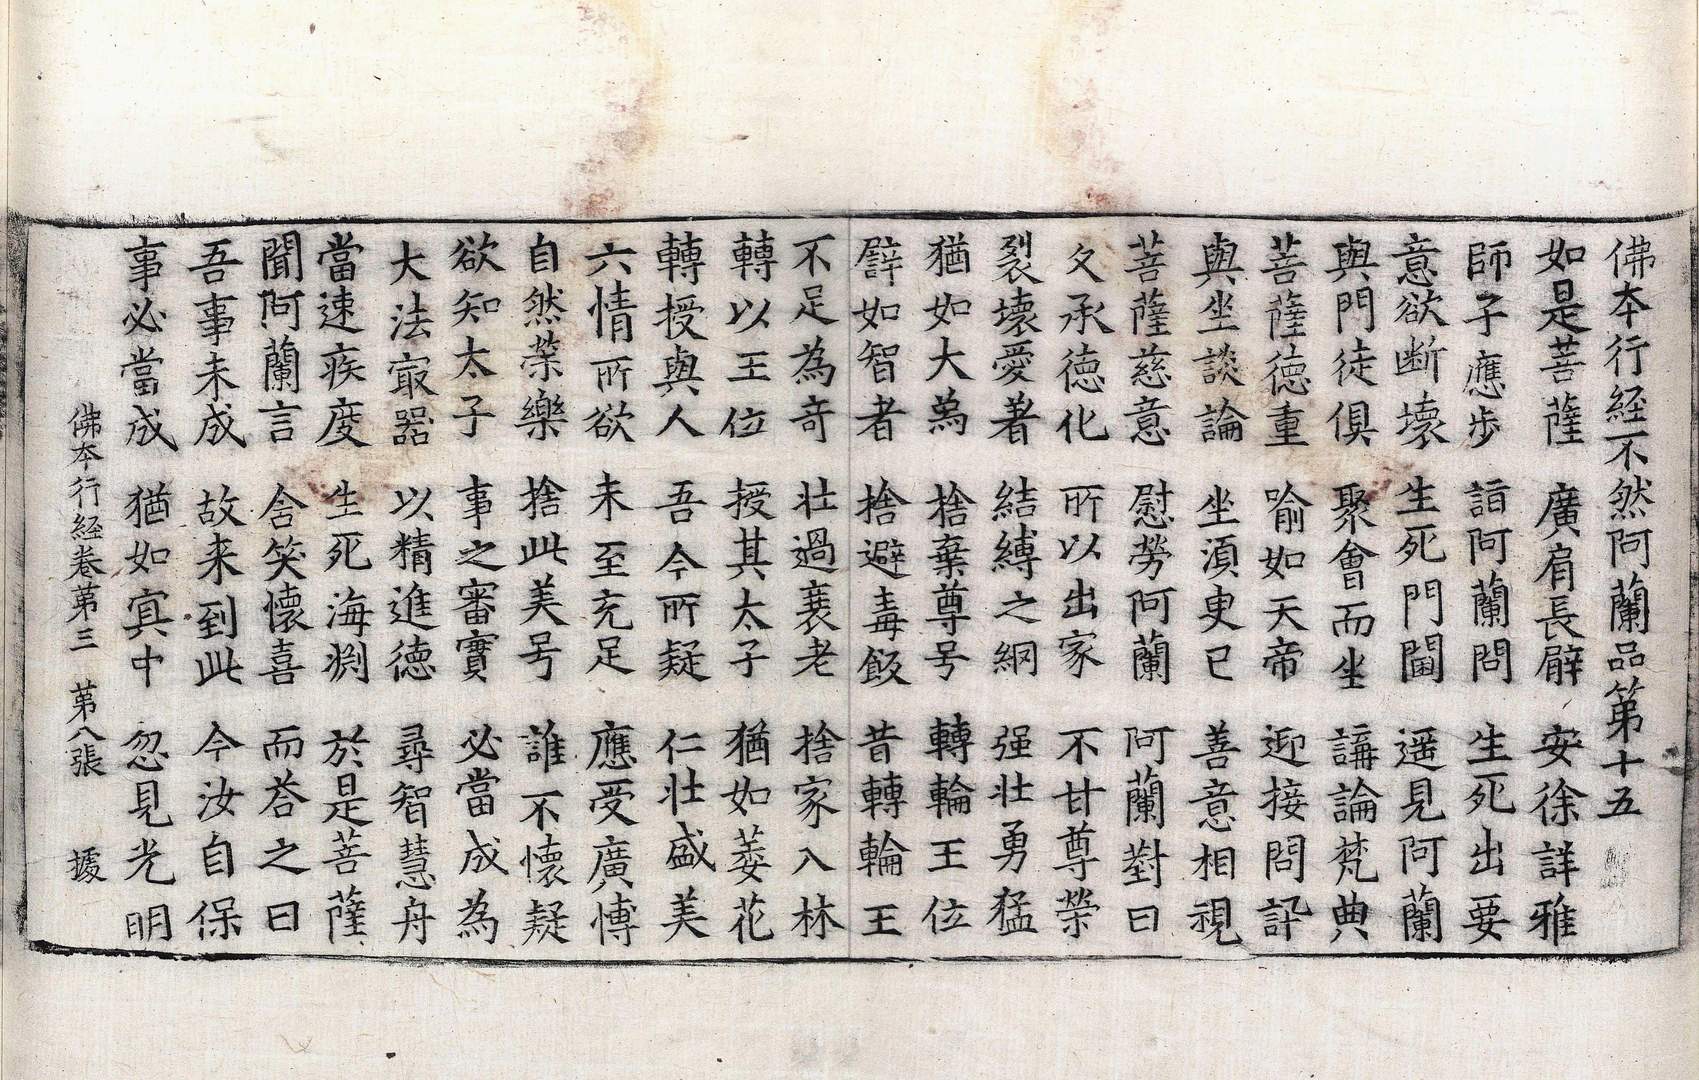 佛本行経不然阿蘭品第十五
如是菩薩 廣肩長臂 安徐詳雅
師子應步 詣阿蘭問 生死出要
意欲断壞 生死門閫 遥見阿蘭
與門徒俱 聚會而坐 講論梵典
菩薩德重 喻如天帝 迎接問訊
與坐談論 坐湏臾已 善意相視
菩薩慈意 慰勞阿蘭 阿蘭對曰
久承德化 所以出家 不甘尊榮
裂壞愛著 結縛之網 强壯勇猛
猶如大為 捨棄尊号 轉輪王位
譬如智者 捨避毒飯 昔轉輪王
不足為奇 壯過衰老 捨家入林
轉以王位 授其太子 猶如萎花
轉授與人 吾今所疑 仁壯盛美
六情所欲 未至充足 應受廣博
自然榮樂 捨此美号 誰不懷疑
欲知太子 事之審實 必當成為
大法㝡器 以精進德 尋智慧舟
當速疾度 生死海渕 於是菩薩
聞阿蘭言 含笑懷喜 而荅之曰
吾事未成 故来到此 今汝自保
事必當成 猶如㝠中 忽見光明
佛本行経卷第三 第八張 援